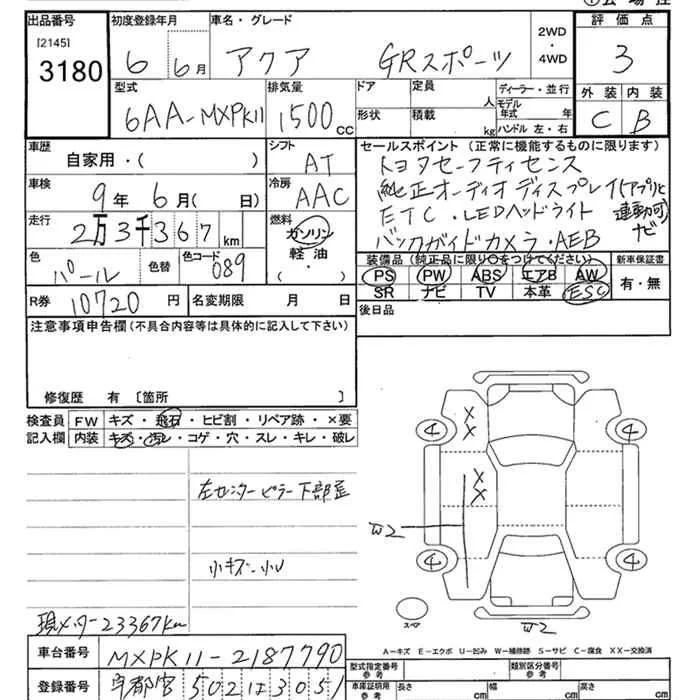 出品番号 初度登録年月 車名・グレード 2WD・4WD 評価点
[2145] 3180
6年 6月 アクア GRスポーツ 3
型式 排気量 ドア 定員 人 ディーラー・並行
6AA-MXPK11 1500cc 形状 積載 kg モデル年式 年 ハンドル 左・右
外装 内装
C B
車歴 自家用・( ) シフト AT
セールスポイント (正常に機能するものに限ります)
トヨタセーフティセンス
車検 9年 6月( 日) 冷房 AAC
純正オーディオディスプレイ(アプリと連動可ナビ
ETC・LEDヘッドライト
バックガイドカメラ・AEB
走行 2万3千367km 燃料 ガソリン 軽油・( )
色 パール 色替 色コード 089
装備品 (純正品に限り○をつけてください) 新車保証書
PS PW ABS エアB AW 有・無
SR ナビ TV 本革 ESC
R券 10720円 名変期限 月 日
後日品
注意事項申告欄(不具合内容等は具体的に記入して下さい)
修復歴 有 [箇所 ]
検査員記入欄 FW キズ・飛石・ヒビ割・リペア跡・×要
内装 キズ・汚レ・コゲ・穴・スレ・キレ・破レ
左センターピラー下部歪
小キズ・小U
現メーター23367km
X
X
X
X
4 4
4 4
W2
スペア
W2
A－キズ E－エクボ U－凹み W－補修跡 S－サビ C－腐食 XX－交換済
車台番号 MXPK11-2187790
型式指定番号 参考 類別区分番号 参考
登録番号 宇都宮 502は3051
車庫証明用 参考 長さ cm 幅 cm 高さ cm